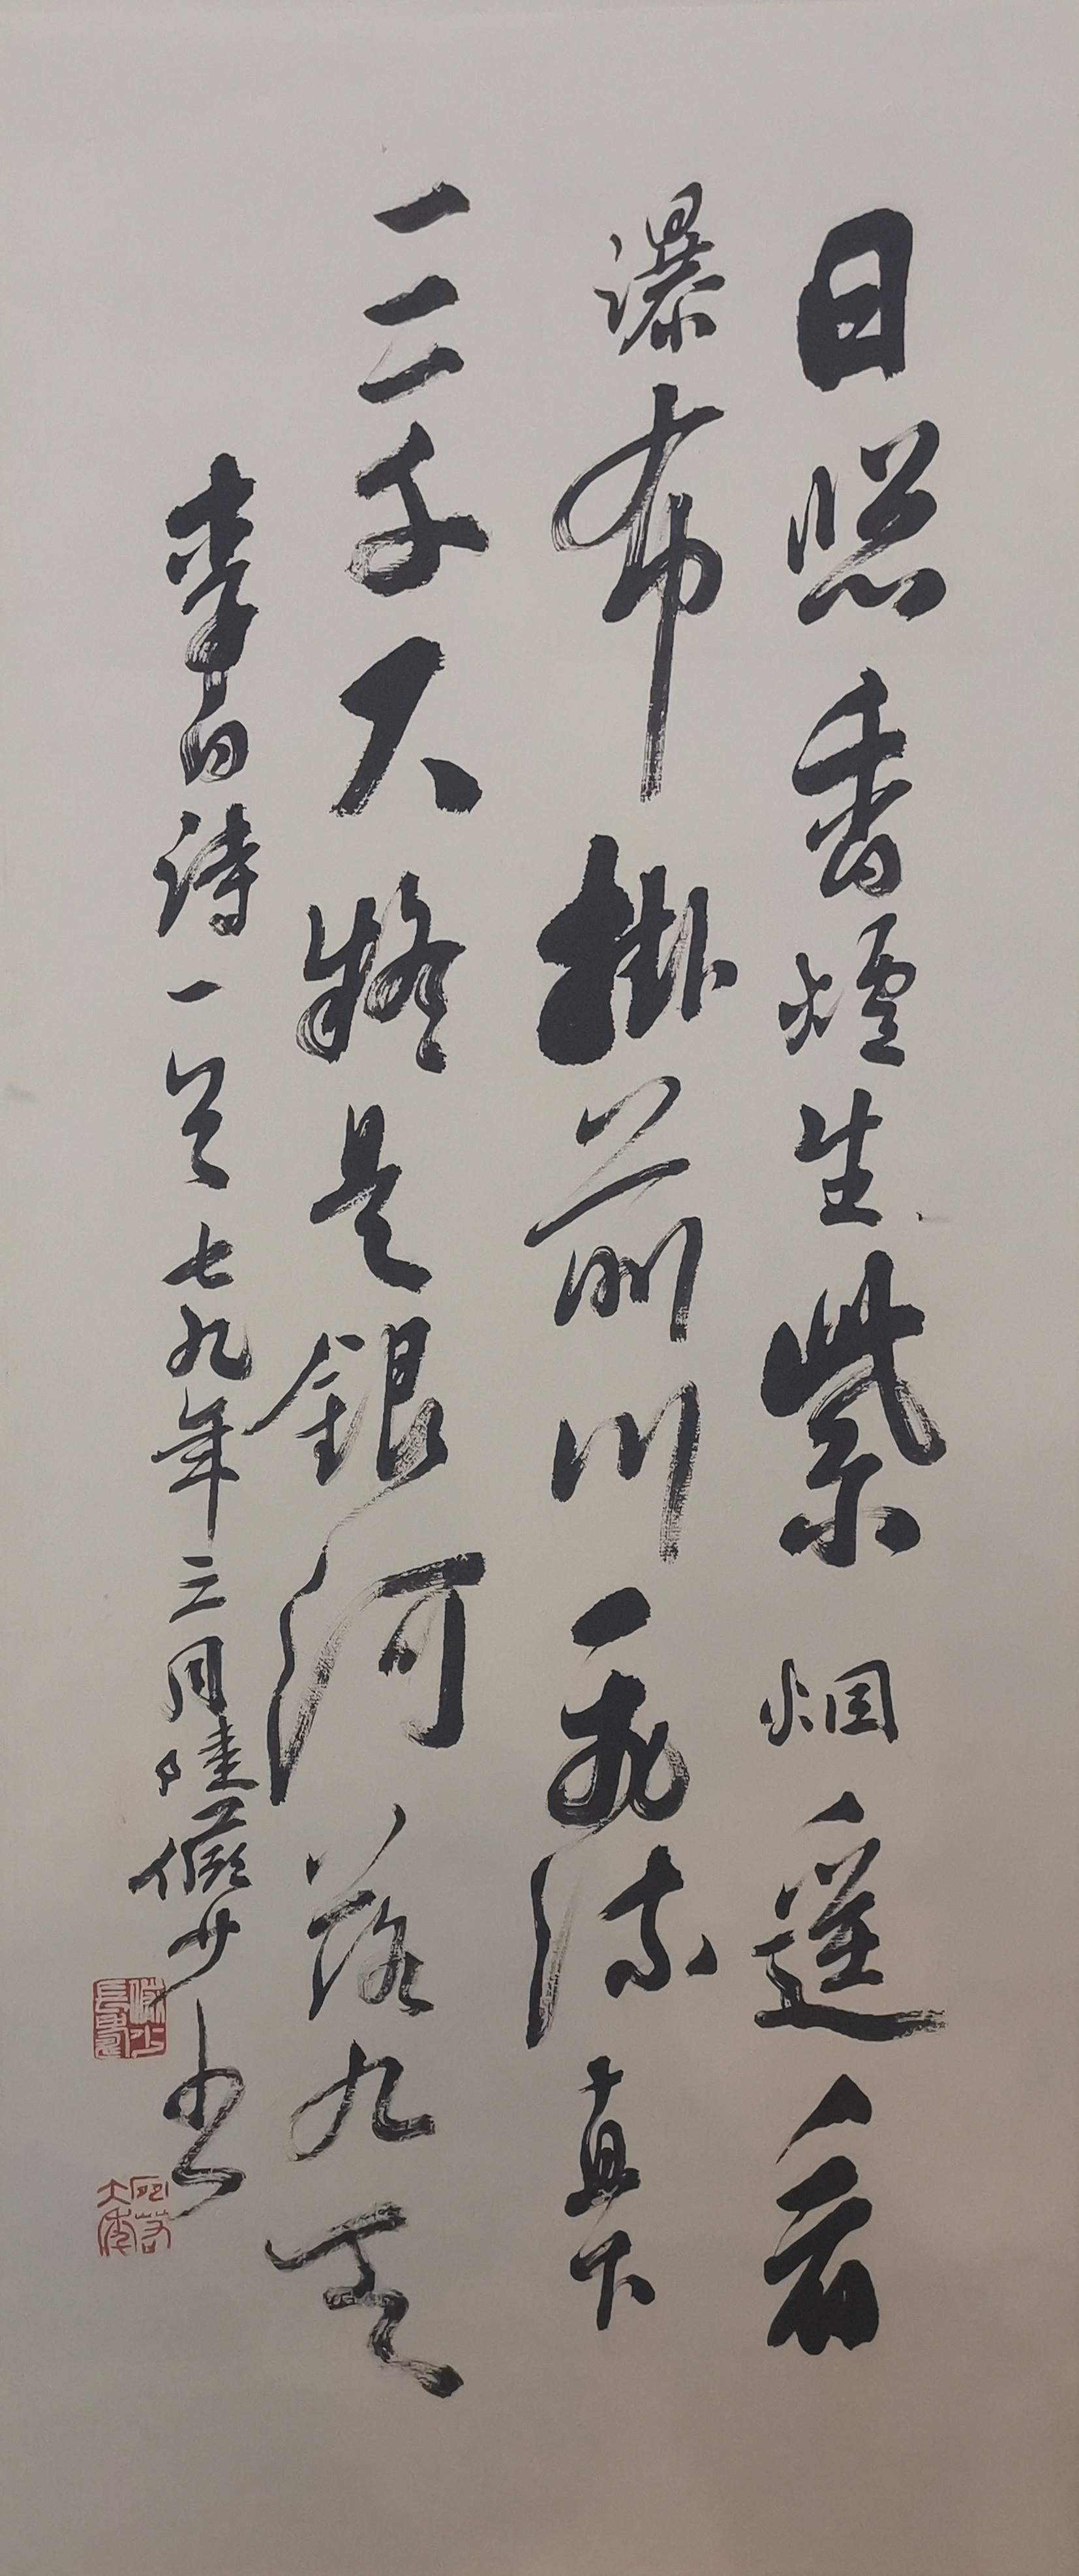 日照香爐生紫烟遥看
瀑布掛前川飛流直下
三千尺疑是銀河落九天
李白詩一首七九年三月陸儼少書